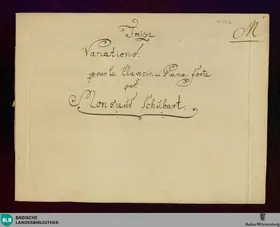 Treize
Variations.
pour le Clavecin ou Piano forte
par
Monsieur Schubart.
M
BLB
BADISCHE
LANDESBIBLIOTHEK
Baden-Württemberg